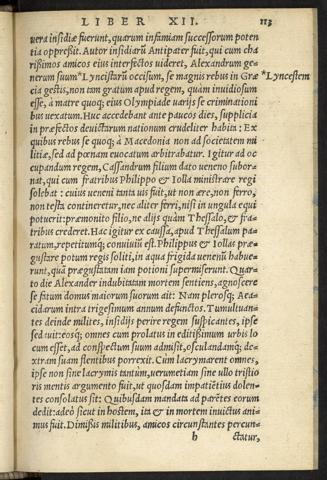 LIBER XII. 113
uera insidiæ fuerint, quarum infamiam successorum poten
tia oppreßit. Autor insidiarũ Antipater fuit, qui cum cha
rißimos amicos eius interfectos uideret, Alexandrum ge-
nerum suum*Lyncistarũ occisum, se magnis rebus in Græ *Lyncestem
cia gestis, non tam gratum apud regem, quàm inuidiosum
esse, à matre quoq; eius Olympiade uarijs se criminationi
bus uexatum. Huc accedebant ante paucos dies, supplicia
in præfectos deuictarum nationum crudeliter habita : Ex
quibus rebus se quoq; à Macedonia non ad societatem mi
litiæ, sed ad pœnam euocatum arbitrabatur. Igitur ad oc
cupandum regem, Cassandrum filium dato ueneno subor-
nat, qui cum fratribus Philippo & Iolla ministrare regi
solebat : cuius ueneni tanta uis fuit, ut non ære, non ferro,
non testa contineretur, nec aliter ferri, nisi in ungula equi
potuerit: præmonito filio, ne alijs quàm Thessalo, & fra-
tribus crederet. Hac igitur ex caussa, apud Thessalum pa-
ratum, repetitumq; conuiuiũ est. Philippus & Iollas præ-
gustare potum regis soliti, in aqua frigida uenenũ habue-
runt, quã prægustatam iam potioni supermiserunt. Quar-
to die Alexander indubitatam mortem sentiens, agnoscere
se fatum domus maiorum suorum ait: Nam plerosq; Aea-
cidarum intra trigesimum annum defunctos. Tumultuan-
tes deinde milites, insidijs perire regem suspicantes, ipse
sed auit: eosq; omnes cum prolatus in editißimum urbis lo
cum esset, ad conspectum suum admisit, osculandamq; de-
xtram suam flentibus porrexit. Cùm lacrymarent omnes,
ipse non sine lacrymis tantùm, uerumetiam sine ullo tristio
ris mentis argumento fuit, ut quosdam impatiẽtius dolen-
tes consolatus sit: Quibusdam mandata ad parẽtes eorum
dedit: adeò sicut in hostem, ita & in mortem inuictus ani-
mus fuit. Dimißis militibus, amicos circunstantes percun-
b ctatur,